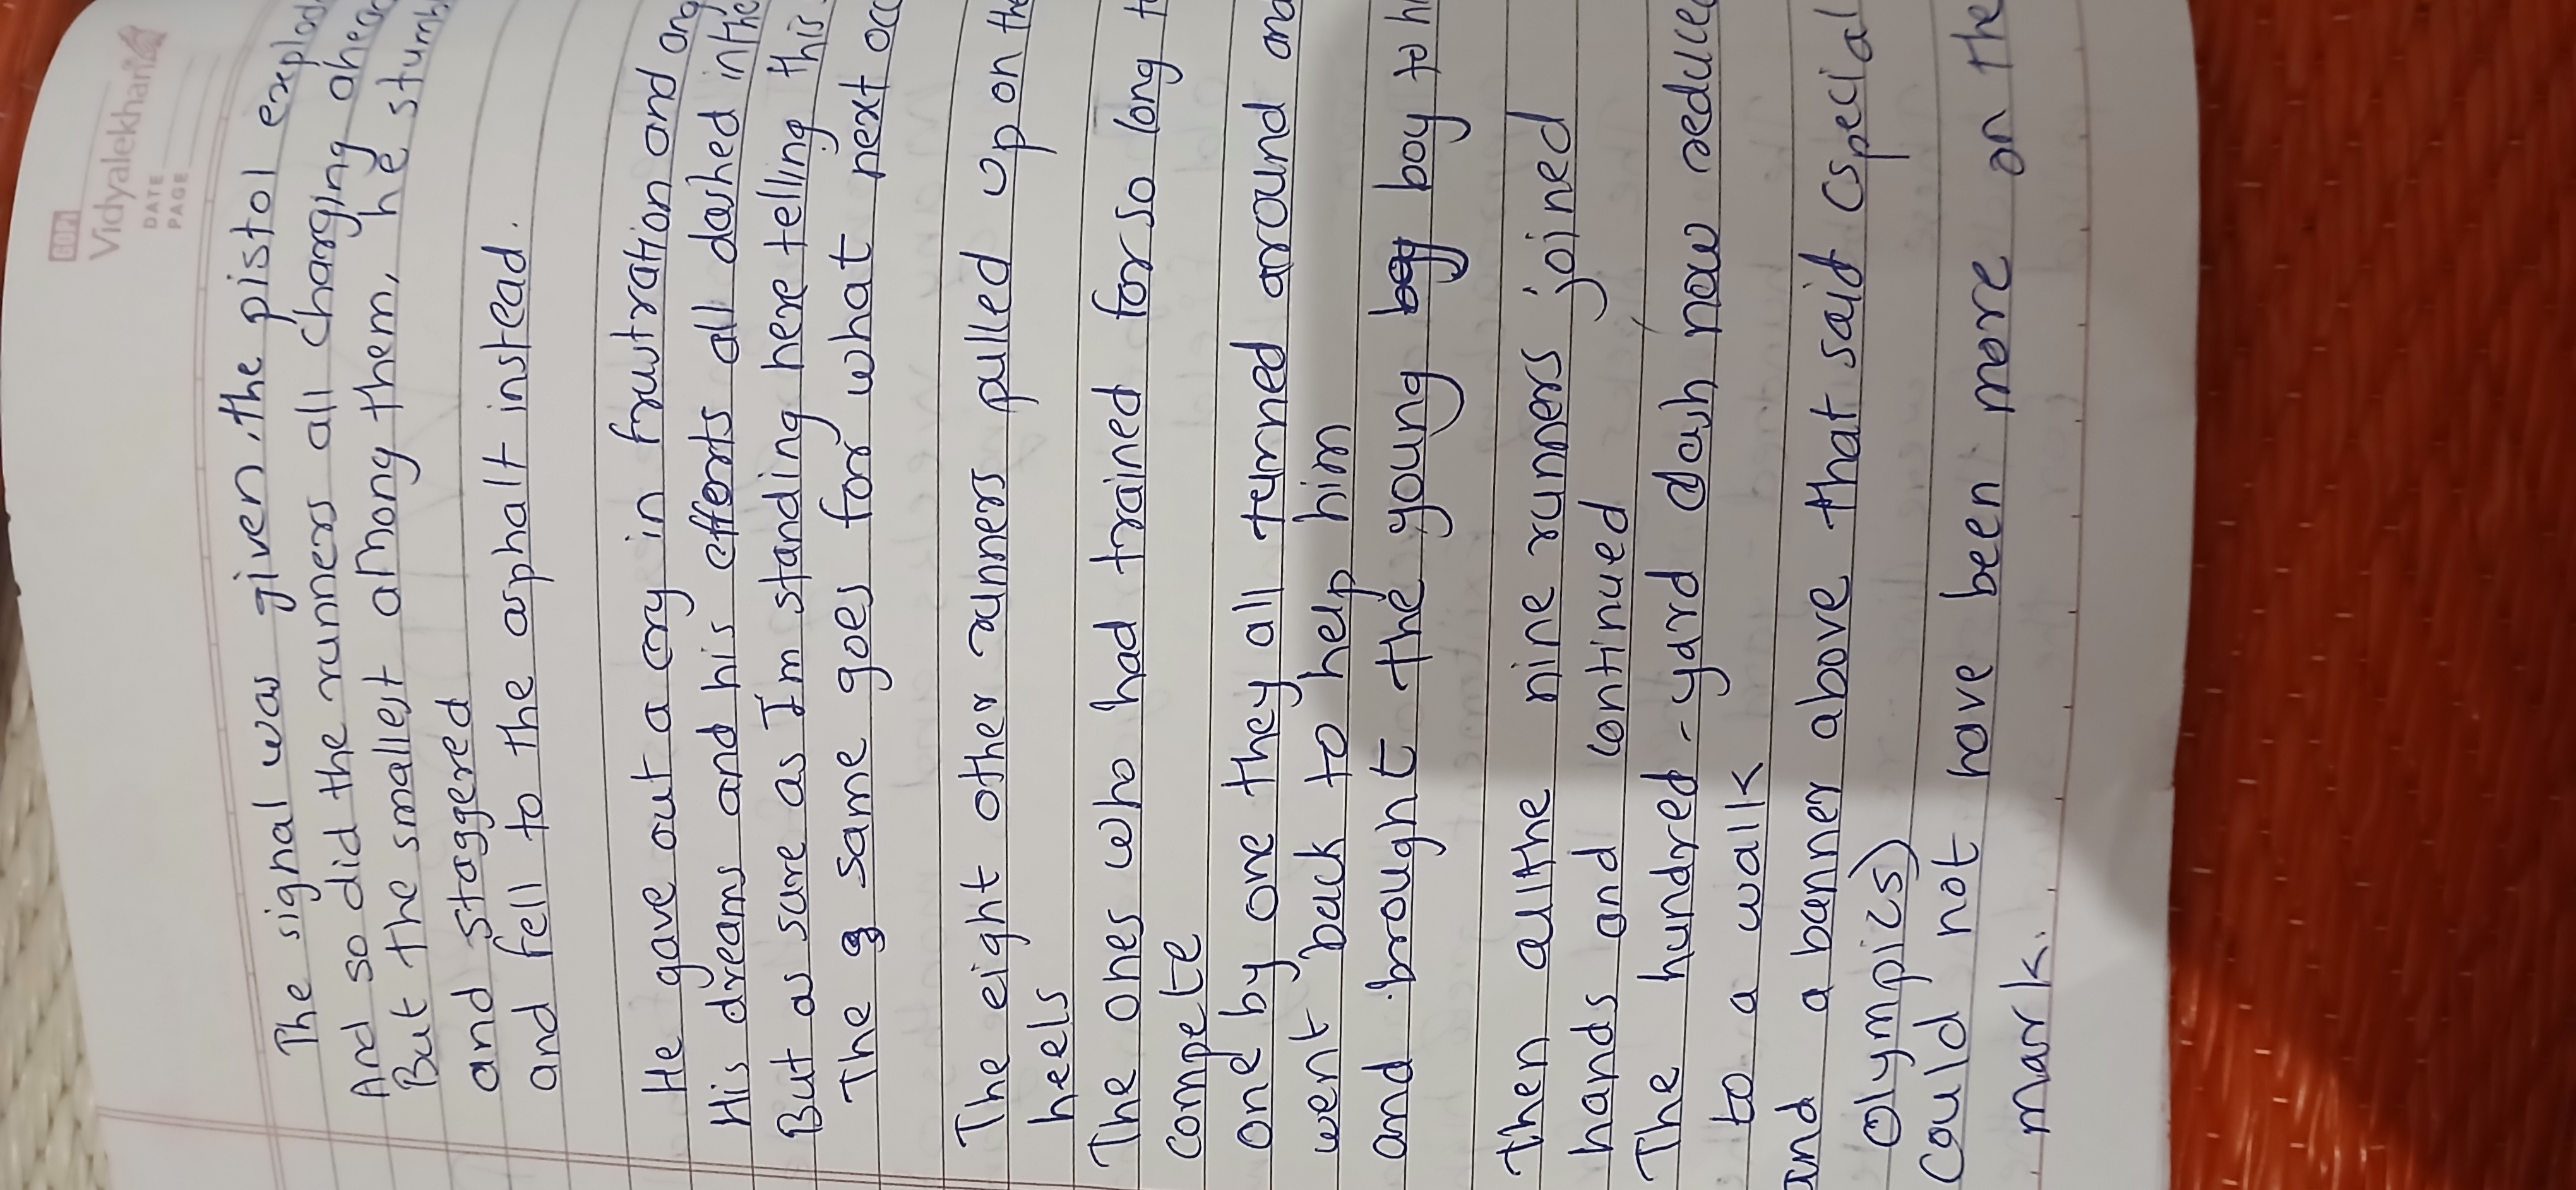 601
Vidyalekhan
DATE
PAGE
The signal was given, the pistol explod
And so did the runners all charging ahea
But the smallest among them, he stumb
and staggered
and fell to the asphalt instead.
He gave out a cry in frustration and ang
His dreams and his efforts all dashed in the
But as sure as I'm standing here telling this
The same goes for what next occ
The eight other runners pulled up on the
heels
The ones who had trained for so long to
compete
one by one they all turned around and
went back to help him
and brought the young boy to hi
Then all the nine runners joined
hands and continued
The hundred-yard dash now reduced
to a walk
and a banner above that said (special
Olympics)
Could not have been more on the
mark.